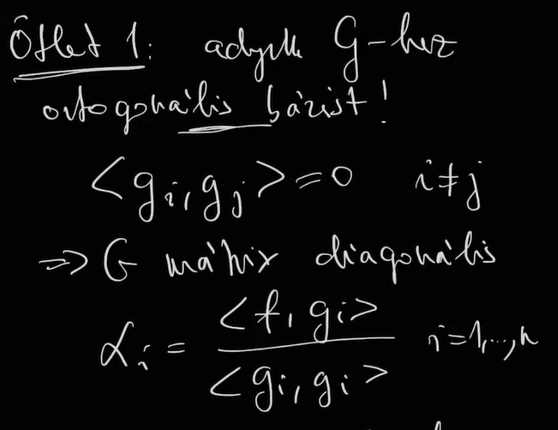 Ötlet 1: adjunk G-hez
ortogonális bázist!
<g_i, g_j> = 0 i ≠ j
⇒ G mátrix diagonális
α_i = <f, g_i> / <g_i, g_i> i=1,...,n